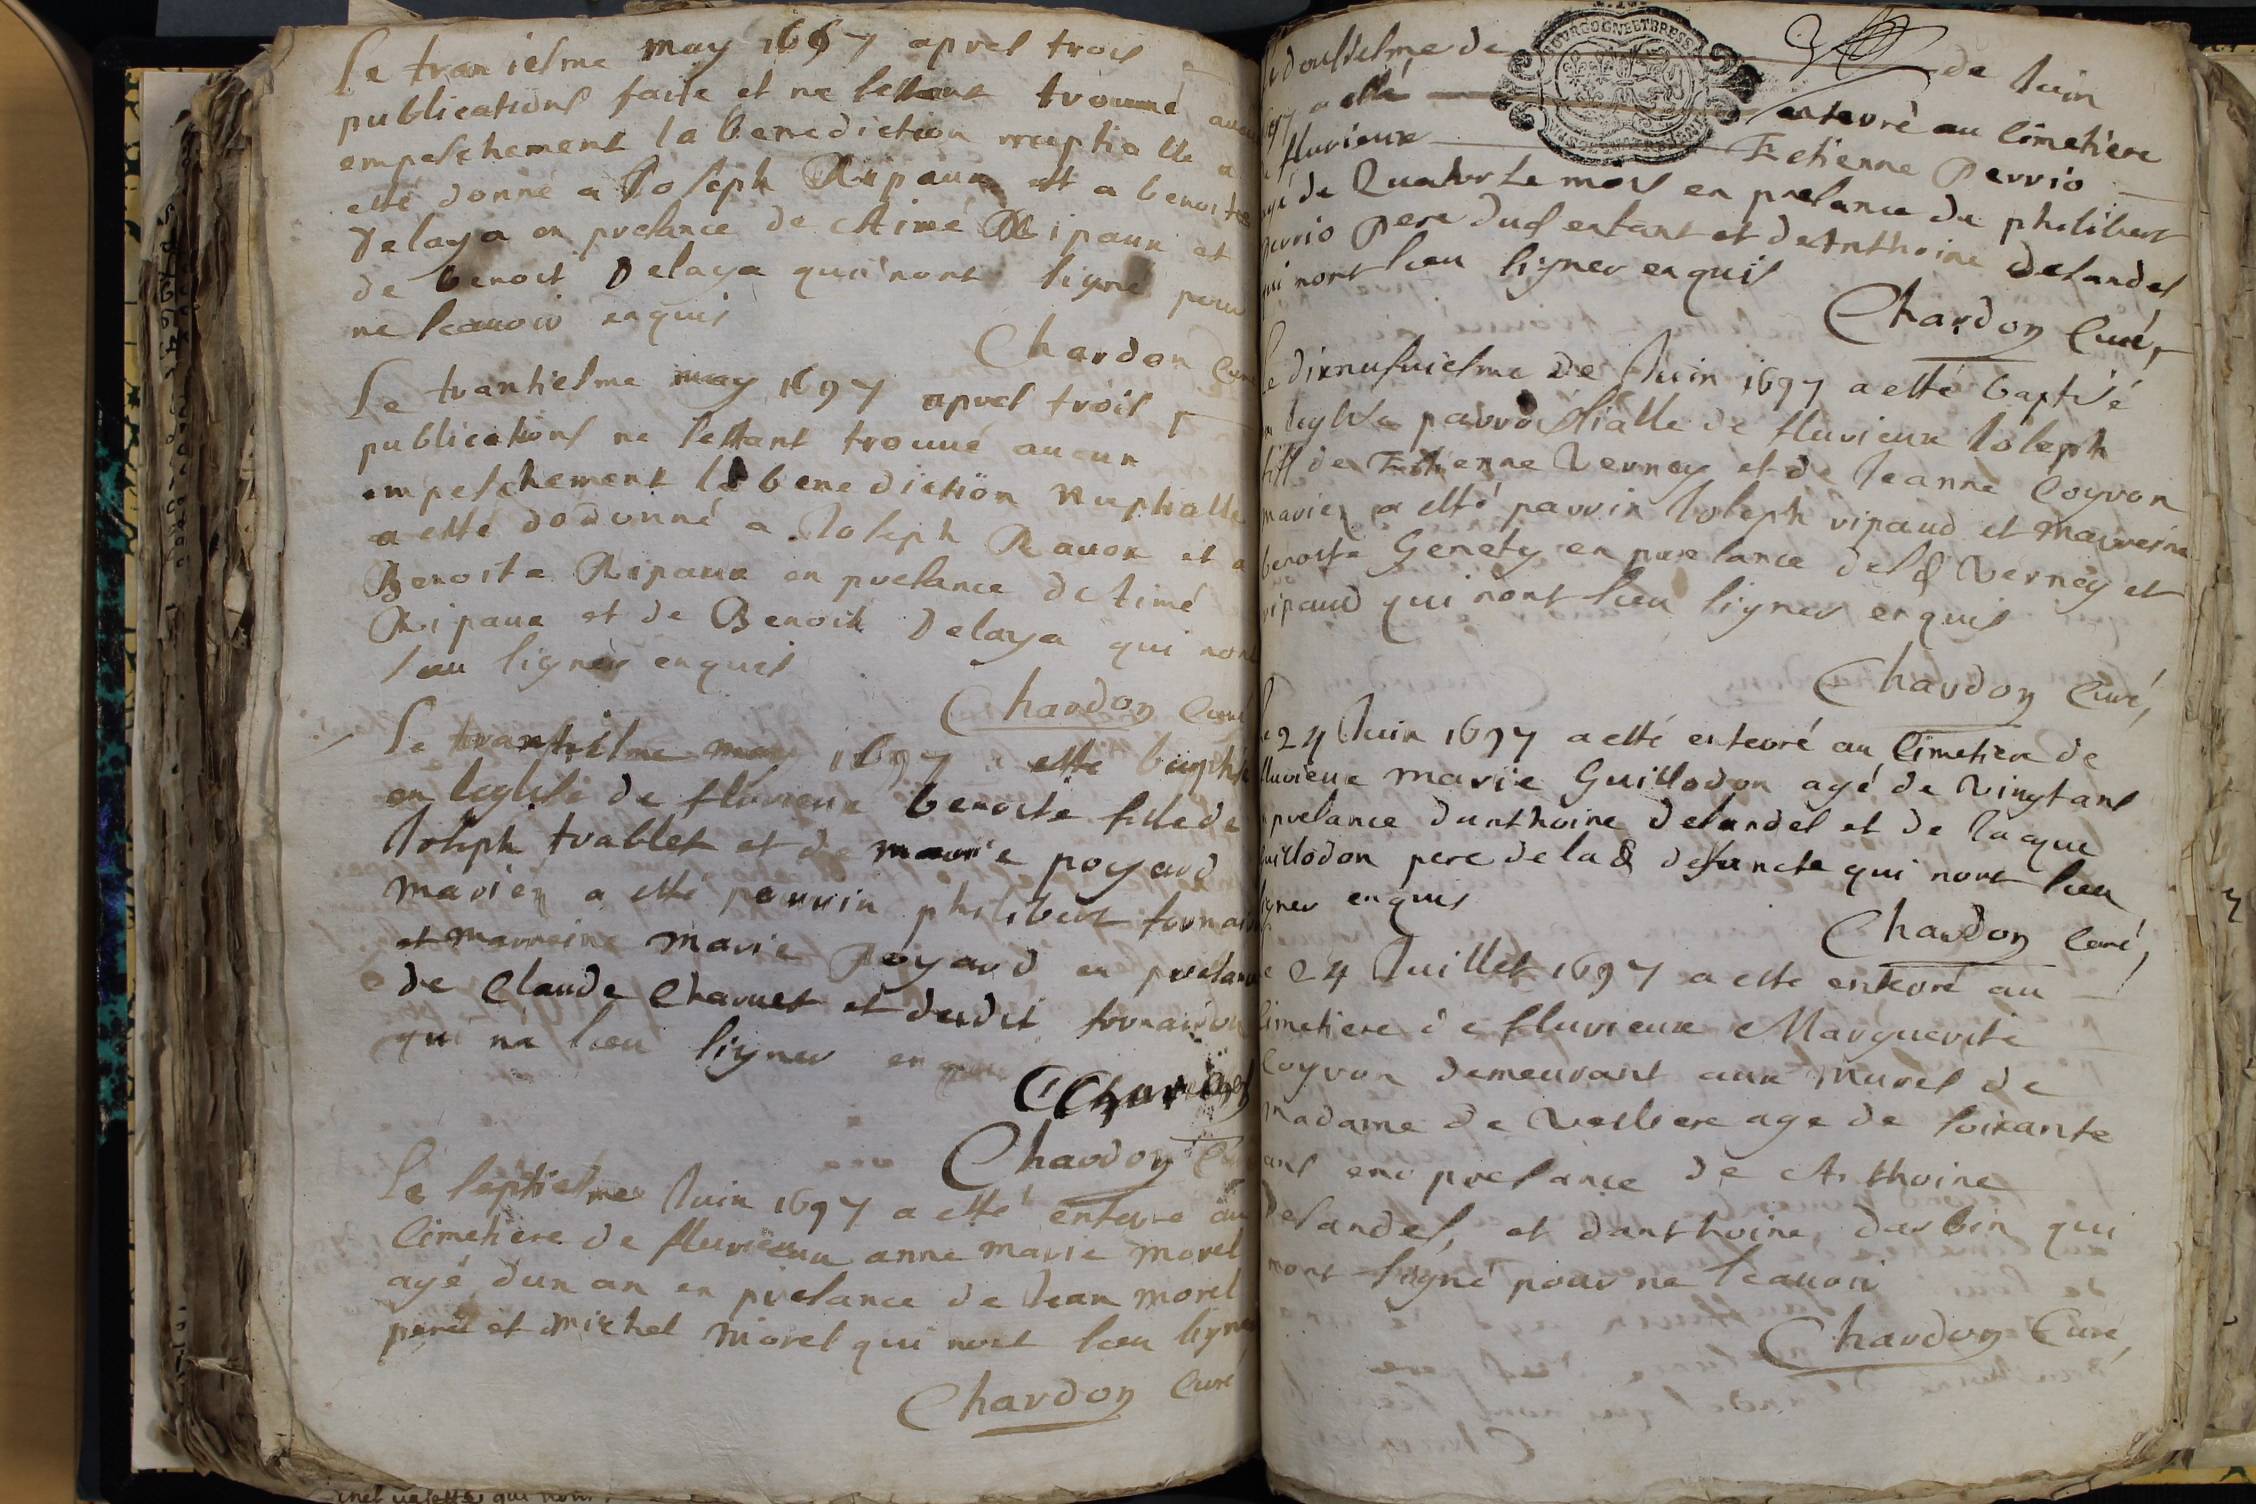 Le trantiesme may 1697 apres trois
publications faite et ne sestant trouuué aucun
empeschement la benediction nuptialle a
esté donné a Joseph Ripaux et a benoite
Delaya en presance de Aimé Ripaux et
de benoit Delaya qui nont signé pour
ne scauoir enquis
Chardon Curé
Le trantiesme may 1697 apres trois
publications ne sestant trouué aucun
empeschement la benediction nuptialle
a esté dodonné a Joseph Rauon et a
Benoite Ripaux en presance de Aimé
Ripaux et de Benoit Delaya qui nont
sceu signer enquis
Chardon Curé
Le trantiesme may 1697 a esté baptisé
en leglise de flurieux benoite fille de
Joseph trablet et de marie poyard
mariez a esté parrin philibert
et marreine marie Poyard en presance
de Claude Charuet et dudit
qui na sceu signer enquis
Charuet
Chardon Curé
Le septiesme Juin 1697 a esté enterré au
Cimetiere de fluurieux anne marie morel
agé dun an en presance de Jean morel
pere et michel morel qui nont sceu signer
Chardon Curé
BOURGOGNE ET BRESSE
Le dousiesme de de Juin
1697 a esté enterré au Cimetiere
de fluurieux Etienne Perrio
agé de Quatorze mois en presance de philibert
perrio pere dud enfant et de Anthoine Delandes
qui nont sceu signer enquis
Chardon Curé,
Le disneufuiesme de Juin 1697 a esté baptisé
en leglise parroissialle de fluurieux Joseph
fils de Etienne Verney et de Jeanne Coyron
mariez a esté parrin Joseph ripaud et marreine
benoite Genety en presance desd Verney et
ripaud qui nont sceu signer enquis
Chardon Curé,
Le 24 Juin 1697 a esté enterré au Cimetiere de
fluurieux marie Guillodon agé de vingt ans
en presance danthoine Delandes et de Jacque
Guillodon pere de lad defuncte qui nont sceu
signer enquis
Chardon Curé,
Le 24 Juillet 1697 a esté enterré au
Cimetiere de fluurieux Marguerite
Coyron demeurant aux mures de
madame de Valliere age de soixante
ans en presance de Anthoine
Delandes, et danthoine darbin qui
nont signé pour ne scauoir
Chardon Curé,